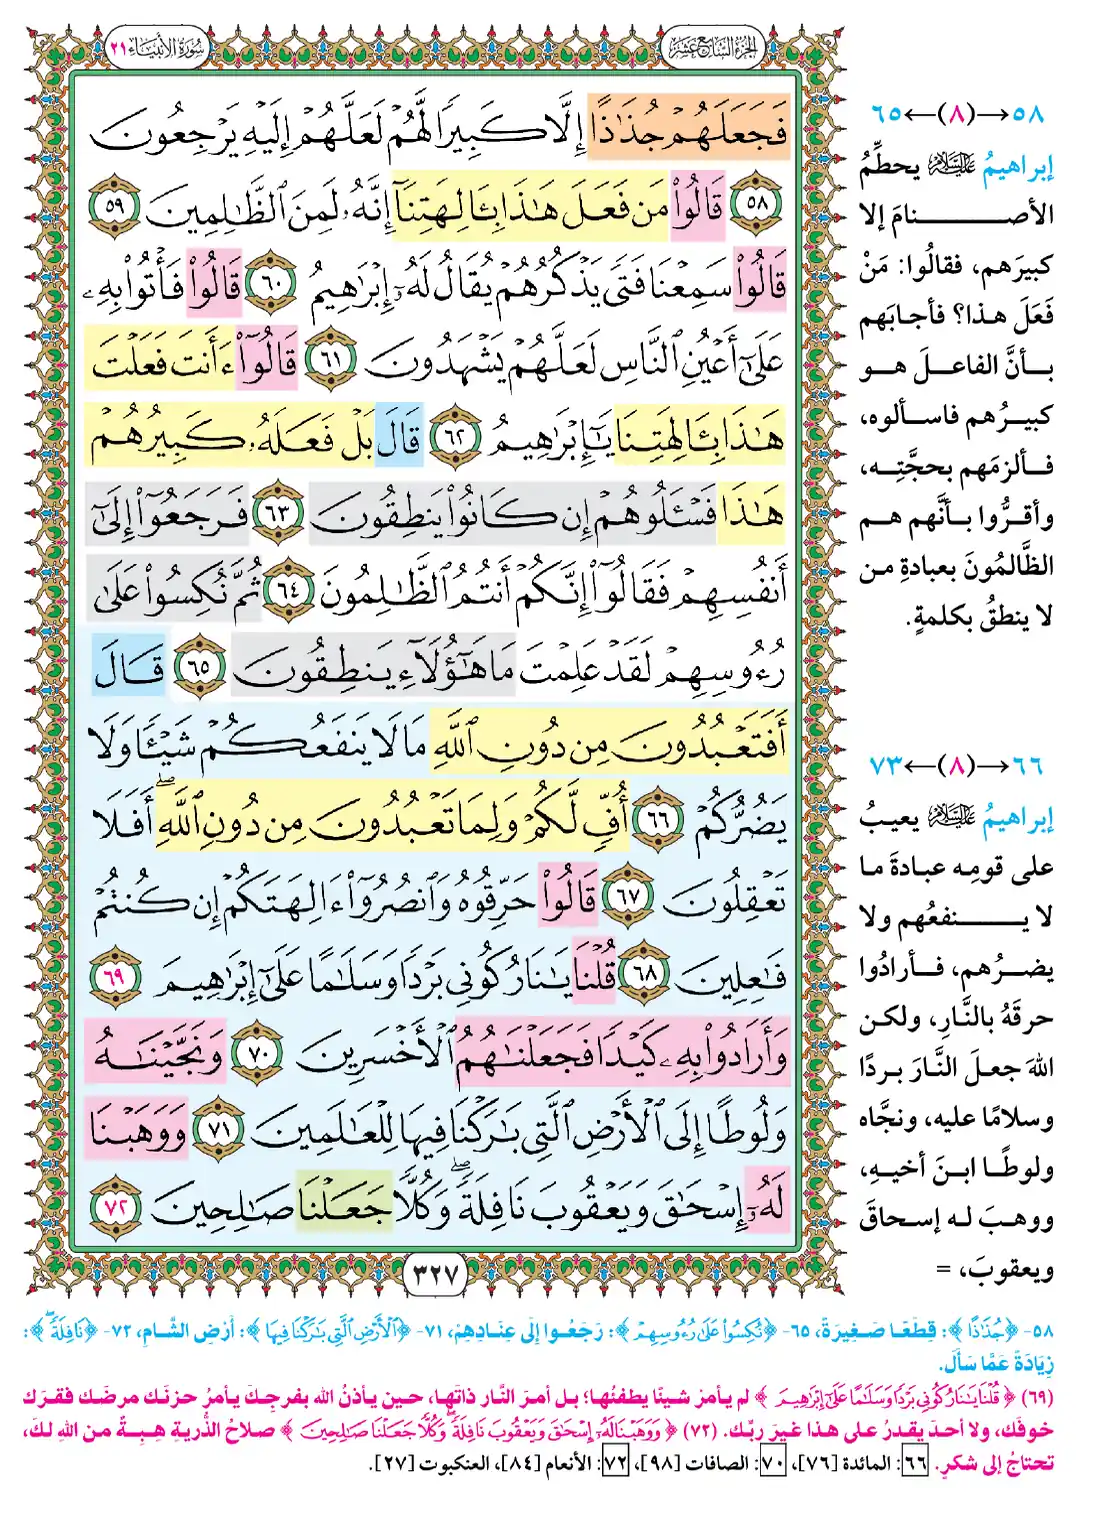 الجزء السابع عشر
سورة الأنبياء ٢١
فَجَعَلَهُمْ جُذَٰذًا إِلَّا كَبِيرًا لَّهُمْ لَعَلَّهُمْ إِلَيْهِ يَرْجِعُونَ
٥٨ قَالُوا۟ مَن فَعَلَ هَٰذَا بِـَٔالِهَتِنَآ إِنَّهُۥ لَمِنَ ٱلظَّٰلِمِينَ ٥٩
قَالُوا۟ سَمِعْنَا فَتًى يَذْكُرُهُمْ يُقَالُ لَهُۥٓ إِبْرَٰهِيمُ ٦٠ قَالُوا۟ فَأْتُوا۟ بِهِۦ
عَلَىٰٓ أَعْيُنِ ٱلنَّاسِ لَعَلَّهُمْ يَشْهَدُونَ ٦١ قَالُوٓا۟ ءَأَنتَ فَعَلْتَ
هَٰذَا بِـَٔالِهَتِنَا يَٰٓإِبْرَٰهِيمُ ٦٢ قَالَ بَلْ فَعَلَهُۥ كَبِيرُهُمْ
هَٰذَا فَسْـَٔلُوهُمْ إِن كَانُوا۟ يَنطِقُونَ ٦٣ فَرَجَعُوٓا۟ إِلَىٰٓ
أَنفُسِهِمْ فَقَالُوٓا۟ إِنَّكُمْ أَنتُمُ ٱلظَّٰلِمُونَ ٦٤ ثُمَّ نُكِسُوا۟ عَلَىٰ
رُءُوسِهِمْ لَقَدْ عَلِمْتَ مَا هَٰٓؤُلَآءِ يَنطِقُونَ ٦٥ قَالَ
أَفَتَعْبُدُونَ مِن دُونِ ٱللَّهِ مَا لَا يَنفَعُكُمْ شَيْـًٔا وَلَا
يَضُرُّكُمْ ٦٦ أُفٍّ لَّكُمْ وَلِمَا تَعْبُدُونَ مِن دُونِ ٱللَّهِ ۖ أَفَلَا
تَعْقِلُونَ ٦٧ قَالُوا۟ حَرِّقُوهُ وَٱنصُرُوٓا۟ ءَالِهَتَكُمْ إِن كُنتُمْ
فَٰعِلِينَ ٦٨ قُلْنَا يَٰنَارُ كُونِى بَرْدًا وَسَلَٰمًا عَلَىٰٓ إِبْرَٰهِيمَ ٦٩
وَأَرَادُوا۟ بِهِۦ كَيْدًا فَجَعَلْنَٰهُمُ ٱلْأَخْسَرِينَ ٧٠ وَنَجَّيْنَٰهُ
وَلُوطًا إِلَى ٱلْأَرْضِ ٱلَّتِى بَٰرَكْنَا فِيهَا لِلْعَٰلَمِينَ ٧١ وَوَهَبْنَا
لَهُۥٓ إِسْحَٰقَ وَيَعْقُوبَ نَافِلَةً ۖ وَكُلًّا جَعَلْنَا صَٰلِحِينَ ٧٢
٣٢٧
٥٨→(٨)←٦٥
إبراهيمُ عليه السلام يحطِّمُ
الأصنامَ إلا
كبيرَهم، فقالُوا: مَنْ
فَعَلَ هذا؟ فأجابَهم
بأنَّ الفاعلَ هو
كبيرُهم فاسألوه،
فألزمَهم بحجَّتِه،
وأقرُّوا بأنَّهم هم
الظَّالمُونَ بعبادةِ من
لا ينطقُ بكلمةٍ.
٦٦→(٨)←٧٣
إبراهيمُ عليه السلام يعيبُ
على قومِه عبادةَ ما
لا ينفعُهم ولا
يضرُهم، فأرادُوا
حرقَهُ بالنَّارِ، ولكن
اللهَ جعلَ النَّارَ بردًا
وسلامًا عليه، ونجَّاه
ولوطًا ابنَ أخيهِ،
ووهبَ له إسحاقَ
ويعقوبَ، =
٥٨- ﴿جُذَٰذًا﴾: قِطَعًا صَغِيرَةً، ٦٥- ﴿نُكِسُوا۟ عَلَىٰ رُءُوسِهِمْ﴾: رَجَعُوا إِلَى عِنَادِهِمْ، ٧١- ﴿ٱلْأَرْضِ ٱلَّتِى بَٰرَكْنَا فِيهَا﴾: أَرْضِ الشَّامِ، ٧٢- ﴿نَافِلَةً ۖ﴾:
زِيَادَةً عَمَّا سَأَلَ.
(٦٩) ﴿قُلْنَا يَٰنَارُ كُونِى بَرْدًا وَسَلَٰمًا عَلَىٰٓ إِبْرَٰهِيمَ﴾ لم يأمر شيئًا يطفئُها؛ بل أمرَ النَّار ذاتَها، حين يأذنُ الله بفرجِكَ يأمرُ حزنَك مرضَك فقرَك
خوفَك، ولا أحدَ يقدرُ على هذا غيرَ ربِّك. (٧٢) ﴿وَوَهَبْنَا لَهُۥٓ إِسْحَٰقَ وَيَعْقُوبَ نَافِلَةً ۖ وَكُلًّا جَعَلْنَا صَٰلِحِينَ﴾ صلاحُ الذُّريةِ هِبةٌ من اللهِ لكَ،
تحتاجُ إلى شكرٍ. ٦٦: المائدة [٧٦]، ٧٠: الصافات [٩٨]، ٧٢: الأنعام [٨٤]، العنكبوت [٢٧].